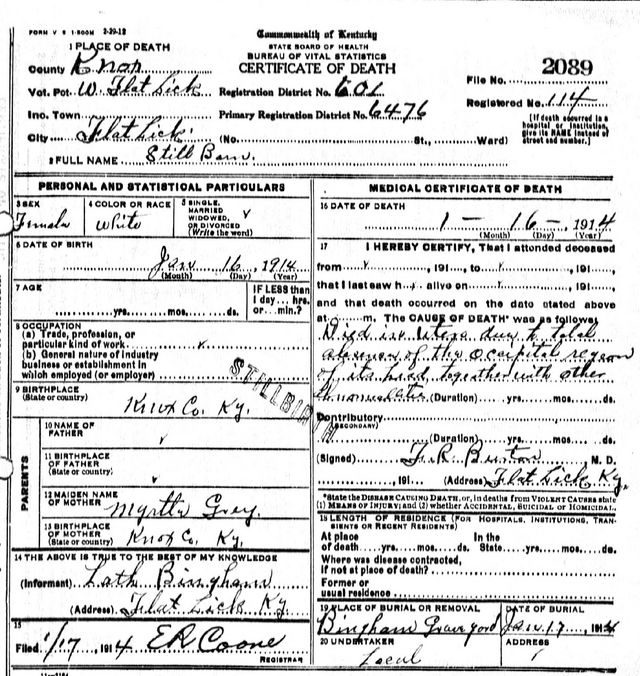 FORM V S 1-500M 2-29-12
Commonwealth of Kentucky
STATE BOARD OF HEALTH
BUREAU OF VITAL STATISTICS
CERTIFICATE OF DEATH
1 PLACE OF DEATH
County Knox
Vot. Pct. W. Flat Lick Registration District No. 601
Inc. Town Primary Registration District No. 6476
City Flat Lick. (No. St., Ward)
2 FULL NAME Still Born.
File No. 2089
Registered No. 114
[If death occurred in a
hospital or institution,
give its NAME instead of
street and number.]
PERSONAL AND STATISTICAL PARTICULARS
3 SEX
Female
4 COLOR OR RACE
White
5 SINGLE,
MARRIED
WIDOWED,
OR DIVORCED
(Write the word)
6 DATE OF BIRTH
Jan 16, 1914
(Month) (Day) (Year)
7 AGE
yrs. mos. ds.
IF LESS than
1 day... hrs.
or... min.?
8 OCCUPATION
(a) Trade, profession, or
particular kind of work
(b) General nature of industry
business or establishment in
which employed (or employer)
STILLBIRTH
9 BIRTHPLACE
(State or country)
Knox Co. Ky.
PARENTS
10 NAME OF
FATHER
11 BIRTHPLACE
OF FATHER
(State or country)
12 MAIDEN NAME
OF MOTHER Myrtle Grey.
13 BIRTHPLACE
OF MOTHER Knox Co. Ky.
(State or country)
14 THE ABOVE IS TRUE TO THE BEST OF MY KNOWLEDGE
(Informant) Bingham
(Address) Flat Lick Ky
15
Filed 1/17, 1914 E R Coone
REGISTRAR
MEDICAL CERTIFICATE OF DEATH
16 DATE OF DEATH
1 - 16 -, 1914
(Month) (Day) (Year)
17 I HEREBY CERTIFY, That I attended deceased
from, 191, to, 191,
that I last saw h alive on, 191,
and that death occurred on the date stated above
at m. The CAUSE OF DEATH* was as follows:
Died in Utero due to total
absence of the occipital region
of its head together with other
(Duration) yrs. mos. ds.
Contributory
(SECONDARY)
(Duration) yrs. mos. ds.
(Signed) J. R. Burton M. D.
, 191 (Address) Flat Lick Ky.
*State the DISEASE CAUSING DEATH, or, in deaths from VIOLENT CAUSES state
(1) MEANS OF INJURY; and (2) whether ACCIDENTAL, SUICIDAL or HOMICIDAL.
18 LENGTH OF RESIDENCE (FOR HOSPITALS, INSTITUTIONS, TRAN-
SIENTS OR RECENT RESIDENTS)
At place In the
of death yrs. mos. ds. State yrs. mos. ds.
Where was disease contracted,
if not at place of death?
Former or
usual residence
19 PLACE OF BURIAL OR REMOVAL
Bingham Grave yard
DATE OF BURIAL
Jan 17, 1914
20 UNDERTAKER
Local
ADDRESS